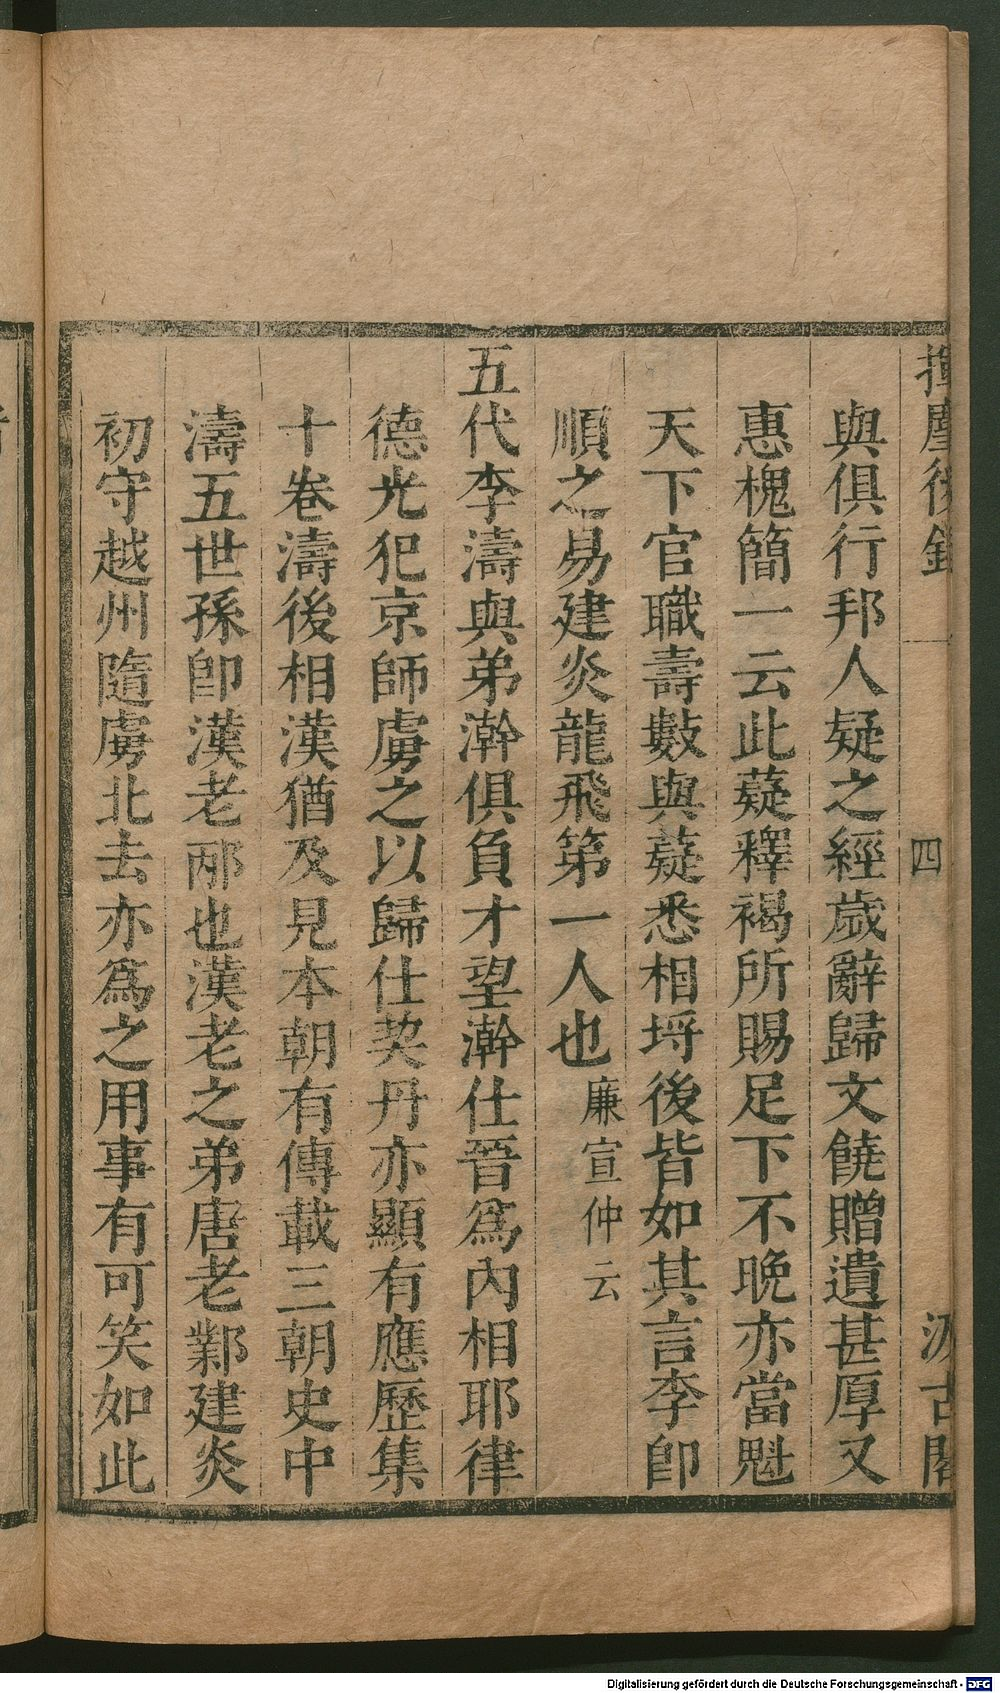 揮麈後錄 一 四 汲古閣
與俱行邦人疑之經歲辭歸文饒贈遺甚厚又
惠槐簡一云此薿釋褐所賜足下不晚亦當魁
天下官職壽數與薿悉相埒後皆如其言李卽
順之易建炎龍飛第一人也廉宣仲云
五代李濤與弟澣俱負才望澣仕晉爲內相耶律
德光犯京師虜之以歸仕契丹亦顯有應歷集
十卷濤後相漢猶及見本朝有傳載三朝史中
濤五世孫卽漢老邴也漢老之弟唐老鄴建炎
初守越州隨虜北去亦爲之用事有可笑如此
Digitalisierung gefördert durch die Deutsche Forschungsgemeinschaft - DFG